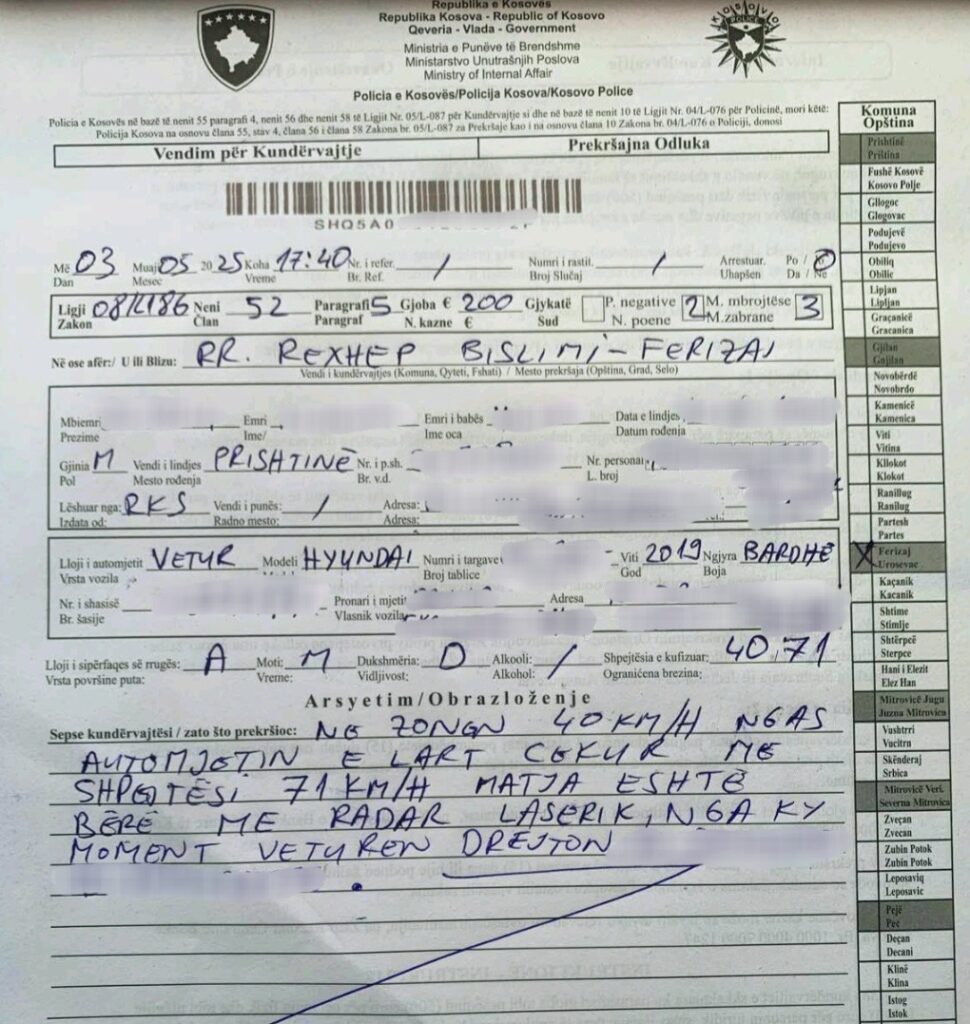 Republika e Kosovës
Republika Kosova - Republic of Kosovo
Qeveria - Vlada - Government
Ministria e Punëve të Brendshme
Ministarstvo Unutrašnjih Poslova
Ministry of Internal Affair
KOSOVO
POLICE
Policia e Kosovës/Policija Kosova/Kosovo Police
Policia e Kosovës në bazë të nenit 55 paragrafi 4, nenit 56 dhe nenit 58 të Ligjit Nr. 05/L-087 për Kundërvajtje si dhe në bazë të nenit 10 të Ligjit Nr. 04/L-076 për Policinë, mori këtë:
Policija Kosova na osnovu člana 55, stav 4, člana 56 i člana 58 Zakona br. 05/L-087 za Prekršaje kao i na osnovu člana 10 Zakona br. 04/L-076 o Policiji, donosi
Vendim për Kundërvajtje Prekršajna Odluka
SHQ5A0
Më 03 Muaj 05 2025 Koha 17:40 Nr. i refer. / Numri i rastit. / Arrestuar. Po / JO
Dan Mesec Vreme Br. Ref. Broj Slučaj Uhapšen Da / Ne
Ligji 08/L186 Neni 52 Paragrafi 5 Gjoba € 200 Gjykatë P. negative 2 M. mbrojtëse 3
Zakon Član Paragraf N. kazne € Sud N. poene M.zabrane
Në ose afër:/ U ili Blizu: RR. REXHEP BISLIMI - FERIZAJ
Vendi i kundërvajtjes (Komuna, Qyteti, Fshati) / Mesto prekršaja (Opština, Grad, Selo)
Mbiemri Emri Emri i babës Data e lindjes
Prezime Ime/ Ime oca Datum rođenja
Gjinia M Vendi i lindjes PRISHTINË Nr. i p.sh. Nr. personal
Pol Mesto rođenja Br. v.d. L. broj
Lëshuar nga: RKS Vendi i punës: / Adresa:
Izdata od: Radno mesto: Adresa:
Lloji i automjetit VETUR Modeli HYUNDAI Numri i targave Viti 2019 Ngjyra BARDHË
Vrsta vozila Broj tablice God Boja
Nr. i shasisë Pronari i mjetit Adresa
Br. šasije Vlasnik vozila
Lloji i sipërfaqes së rrugës: A Moti: M Dukshmëria: D Alkooli: / Shpejtësia e kufizuar: 40,71
Vrsta površine puta: Vreme: Vidljivost: Alkohol: Ograničena brezina:
Arsyetim/Obrazloženje
Sepse kundërvajtësi / zato što prekršioc: NE ZONEN 40 KM/H NGAS
AUTOMJETIN E LART CEKUR ME
SHPEJTËSI 71 KM/H MATJA ESHTË
BËRË ME RADAR LASERIK, NGA KY
MOMENT VETUREN DREJTON
Komuna
Opština
Prishtinë
Priština
Fushë Kosovë
Kosovo Polje
Gllogoc
Glogovac
Podujevë
Podujevo
Obiliq
Obilic
Lipjan
Lipljan
Graçanicë
Gracanica
Gjilan
Gnjilan
Novobërdë
Novobrdo
Kamenicë
Kamenica
Viti
Vitina
Kllokot
Klokot
Ranillug
Ranilug
Partesh
Partes
X Ferizaj
Urosevac
Kaçanik
Kacanik
Shtime
Stimlje
Shtërpcë
Sterpce
Hani i Elezit
Elez Han
Mitrovicë Jugu
Juzna Mitrovica
Vushtrri
Vucitrn
Skënderaj
Srbica
Mitrovicë Veri.
Severna Mitrovica
Zveçan
Zvecan
Zubin Potok
Zubin Potok
Leposaviq
Leposavic
Pejë
Pec
Deçan
Decani
Klinë
Klina
Istog
Istok